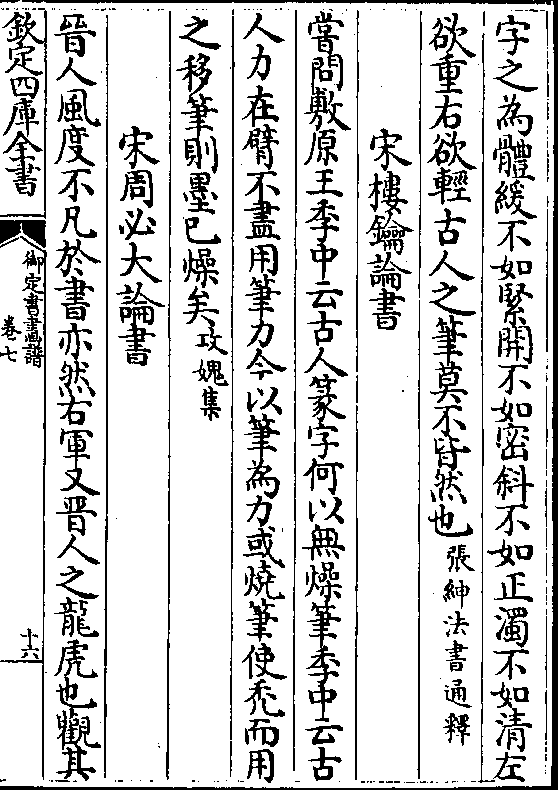 字之為體緩不如緊開不如密斜不如正濁不如清左
欲重右欲輕古人之筆莫不皆然也張紳法書通釋
宋樓鑰論書
嘗問敷原王季中云古人篆字何以無燥筆季中云古
人力在臂不盡用筆力今以筆為力或燒筆使禿而用
之移筆則墨已燥矣攻媿集
宋周必大論書
晉人風度不凡於書亦然右軍又晉人之龍虎也觀其
欽定四庫全書
御定書畫譜
卷七
十六